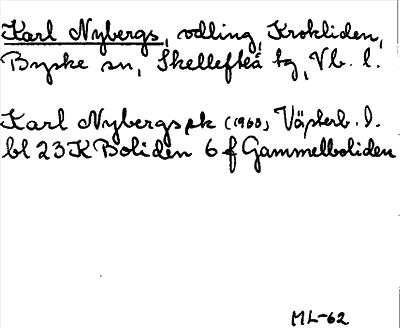 Karl Nybergs, odling, Krokliden,
Byske sn, Skellefteå tg, Vb. l.
Karl Nybergs ek (1960) Västerb. l.
bl 23K Boliden 6 f Gammelboliden
ML-62